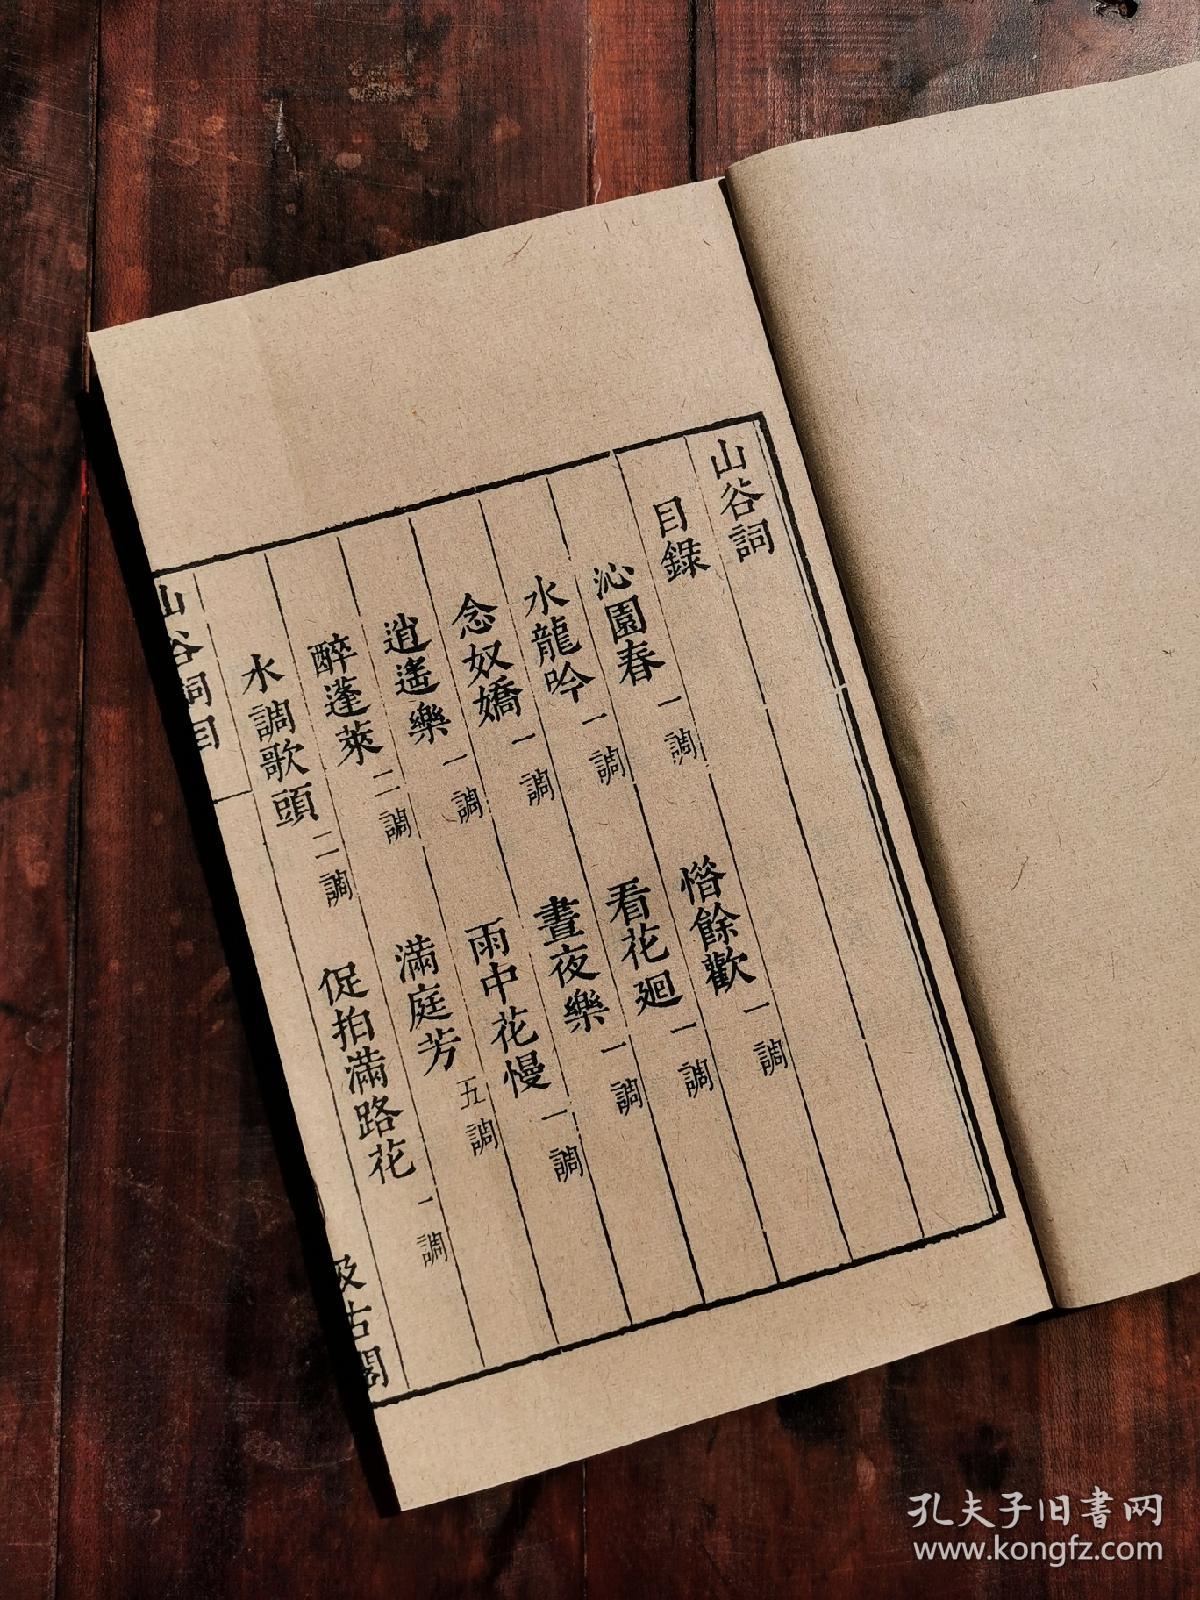 山谷詞
目錄
沁園春一調 惜餘歡一調
水龍吟一調 看花廻一調
念奴嬌一調 晝夜樂一調
逍遙樂一調 雨中花慢一調
醉蓬萊二調 滿庭芳五調
水調歌頭二調 促拍滿路花一調
山谷詞目 一 汲古閣
孔夫子旧書网
www.kongfz.com